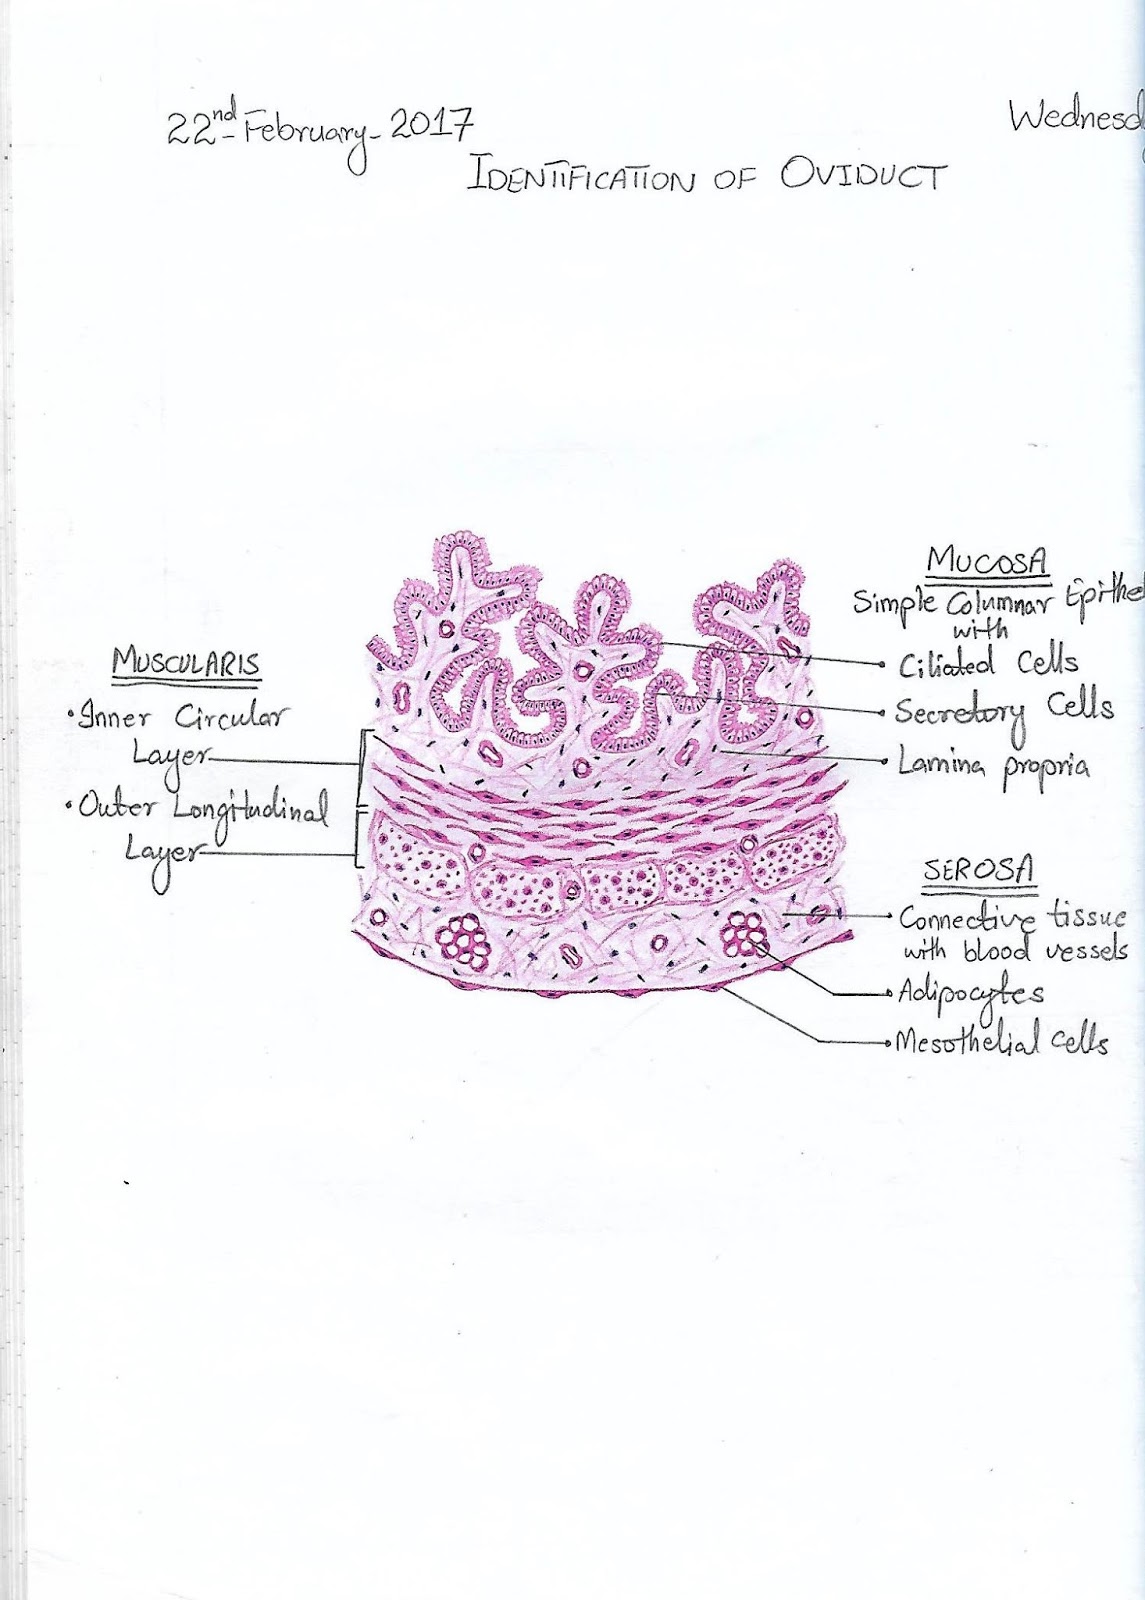 22nd February 2017
Wednesd
IDENTIFICATION OF OVIDUCT
MUCOSA
Simple Columnar Epithe
with
Ciliated Cells
Secretory Cells
Lamina propria
MUSCULARIS
• Inner Circular
Layer
• Outer Longitudinal
Layer
SEROSA
Connective tissue
with blood vessels
Adipocytes
Mesothelial cells